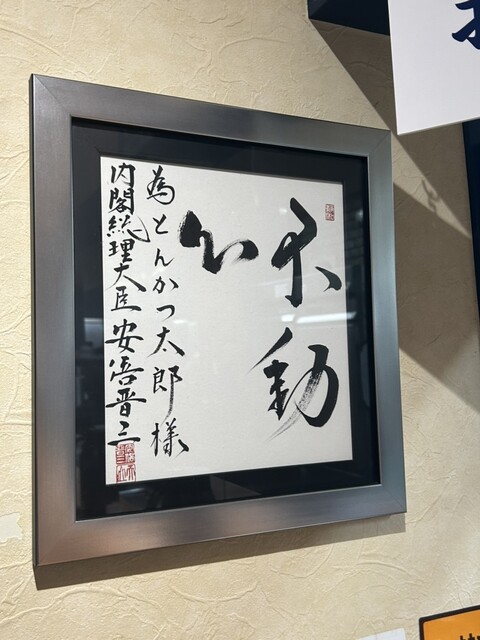 不動
心
為とんかつ太郎様
内閣総理大臣 安倍晋三